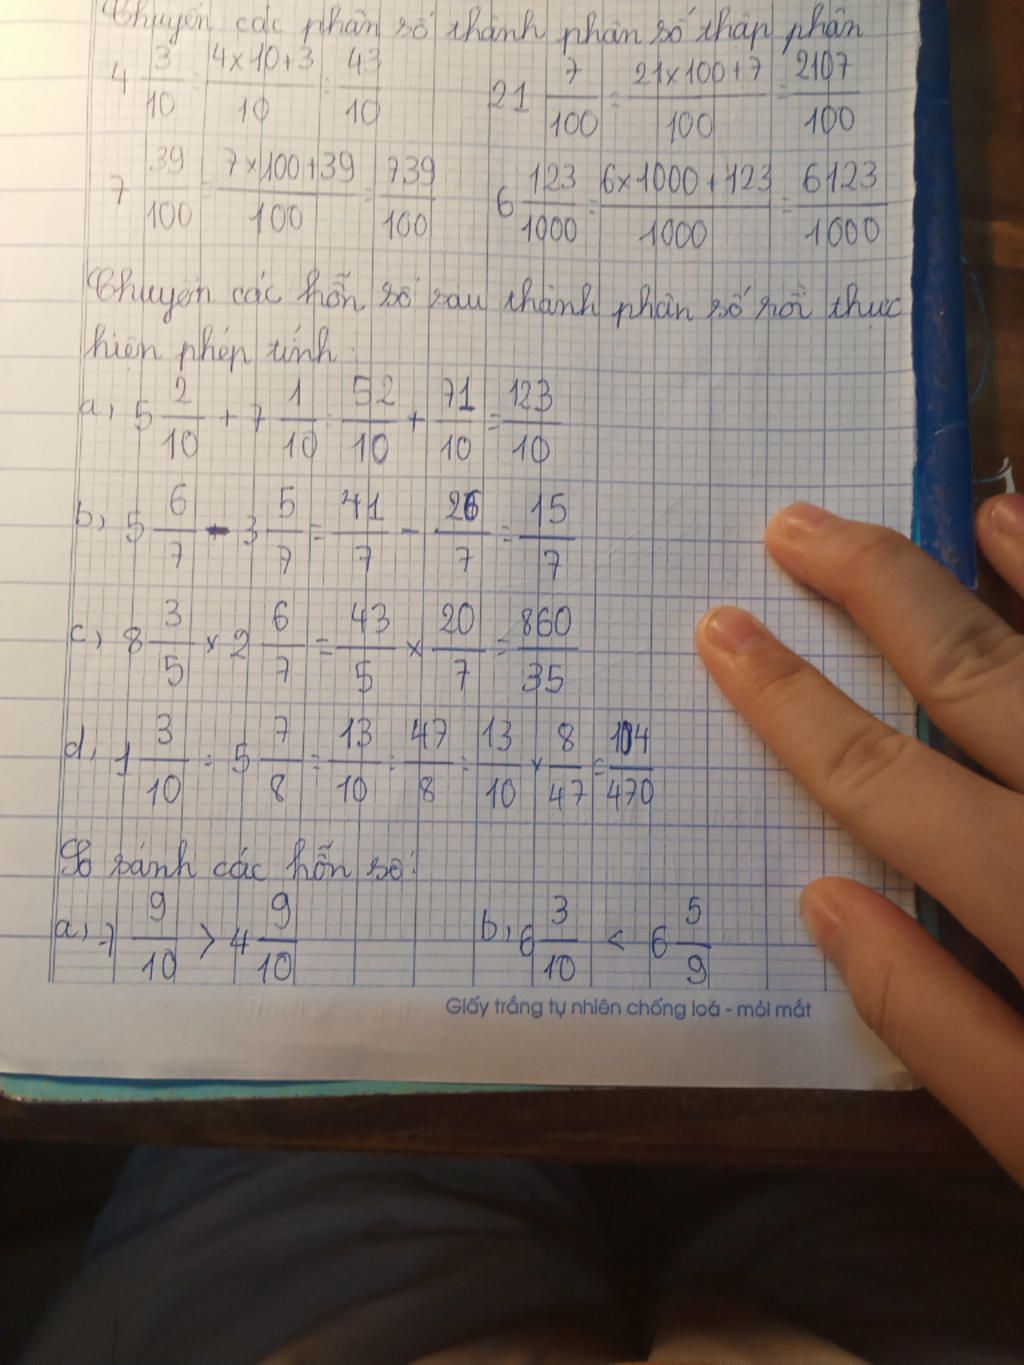 Chuyển các phân số thành phân số thập phân
4 3/10 = 4×10+3/10 = 43/10 21 7/100 = 21×100+7/100 = 2107/100
7 39/100 = 7×100+39/100 = 739/100 6 123/1000 = 6×1000+123/1000 = 6123/1000
Chuyển các hỗn số sau thành phân số rồi thực
hiện phép tính:
a, 5 2/10 + 7 1/10 = 52/10 + 71/10 = 123/10
b, 5 6/7 - 3 5/7 = 41/7 - 26/7 = 15/7
c, 8 3/5 × 2 6/7 = 43/5 × 20/7 = 860/35
d, 1 3/10 : 5 7/8 = 13/10 : 47/8 = 13/10 × 8/47 = 104/470
So sánh các hỗn số:
a, 7 9/10 > 4 9/10 b, 6 3/10 < 6 5/9
Giấy trắng tự nhiên chống loá - mỏi mắt